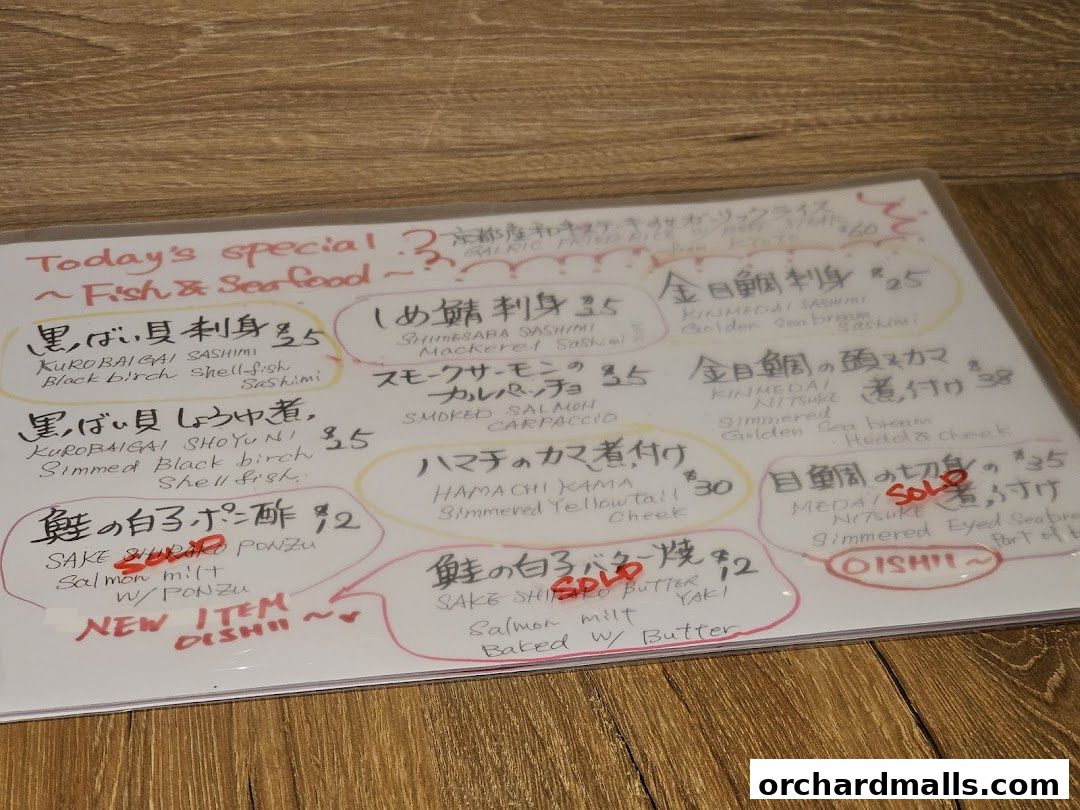 Today's special
~ Fish & Seafood ~
京都産和牛ステーキのせガーリックライス
GALRIC FRIED RICE W/ BEEF STEAK
from KYOTO
$60
黒ばい貝刺身 $25
KUROBAIGAI SASHIMI
Black birch Shell-fish
Sashimi
黒ばい貝しょうゆ煮
KUROBAIGAI SHOYU NI $25
Simmed Black birch
Shell fish.
鮭の白子ポン酢 $12
SAKE SHIRAKO PONZU
SOLD
Salmon milt
W/ PONZU
NEW ITEM
OISHII ~
しめ鯖刺身 $35
SHIMESABA SASHIMI
Mackerel Sashimi
スモークサーモンの
カルパッチョ $25
SMOKED SALMON
CARPACCIO
ハマチのカマ煮付け
HAMACHI KAMA $30
Simmered Yellowtail
Cheek
鮭の白子バター焼 $12
SOLD
SAKE SHIRAKO BUTTER
YAKI
Salmon milt
Baked W/ Butter
金目鯛刺身 $25
KINMEDAI SASHIMI
Golden Sea bream
Sashimi
金目鯛の頭&カマ
煮付け $38
KINMEDAI
NITSUKE
Simmered
Golden Sea bream
Head & cheek
目鯛の切身の $35
煮付け
MEDAI
SOLD
NITSUKE
Simmered Eyed Seabre
Part of
OISHII ~
orchardmalls.com